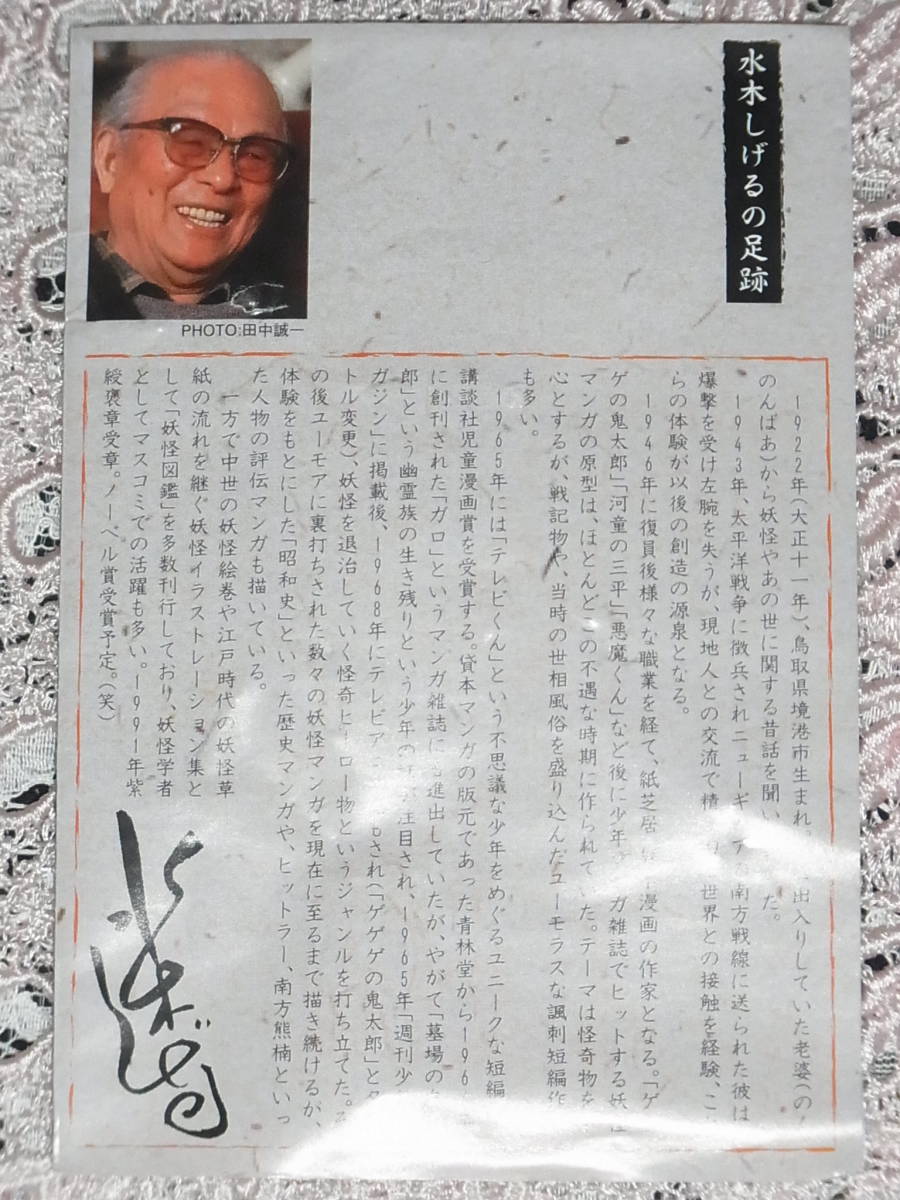 水木しげるの足跡
PHOTO:田中誠一
1922年(大正十一年)、鳥取県境港市生まれ。出入りしていた老婆(の
のんばあ)から妖怪やあの世に関する昔話を聞いた。
1943年、太平洋戦争に徴兵されニューギア南方戦線に送られた彼は
爆撃を受け左腕を失うが、現地人との交流で精世界との接触を経験、こ
らの体験が以後の創造の源泉となる。
1946年に復員後様々な職業を経て、紙芝居漫画の作家となる。「ゲ
ゲの鬼太郎」「河童の三平」「悪魔くん」など後に少年ガ雑誌でヒットする妖
マンガの原型は、ほとんどこの不遇な時期に作られていた。テーマは怪奇物を
心とするが、戦記物や、当時の世相風俗を盛り込んだユーモラスな諷刺短編作
も多い。
1965年には「テレビくん」という不思議な少年をめぐるユニークな短編
講談社児童漫画賞を受賞する。貸本マンガの版元であった青林堂から196
に創刊された「ガロ」というマンガ雑誌に進出していたが、やがて「墓場の
郎」という幽霊族の生き残りという少年の注目され、1965年「週刊少
ガジン」に掲載後、1968年にテレビアされ(「ゲゲゲの鬼太郎」とタ
トル変更)、妖怪を退治していく怪奇ヒーロー物というジャンルを打ち立てた。そ
の後ユーモアに裏打ちされた数々の妖怪マンガを現在に至るまで描き続けるが、
体験をもとにした「昭和史」といった歴史マンガや、ヒットラー、南方熊楠といっ
た人物の評伝マンガも描いている。
一方で中世の妖怪絵巻や江戸時代の妖怪草
紙の流れを継ぐ妖怪イラストレーション集と
して「妖怪図鑑」を多数刊行しており、妖怪学者
としてマスコミでの活躍も多い。1991年紫
綬褒章受章。ノーベル賞受賞予定。(笑)
水木しげる